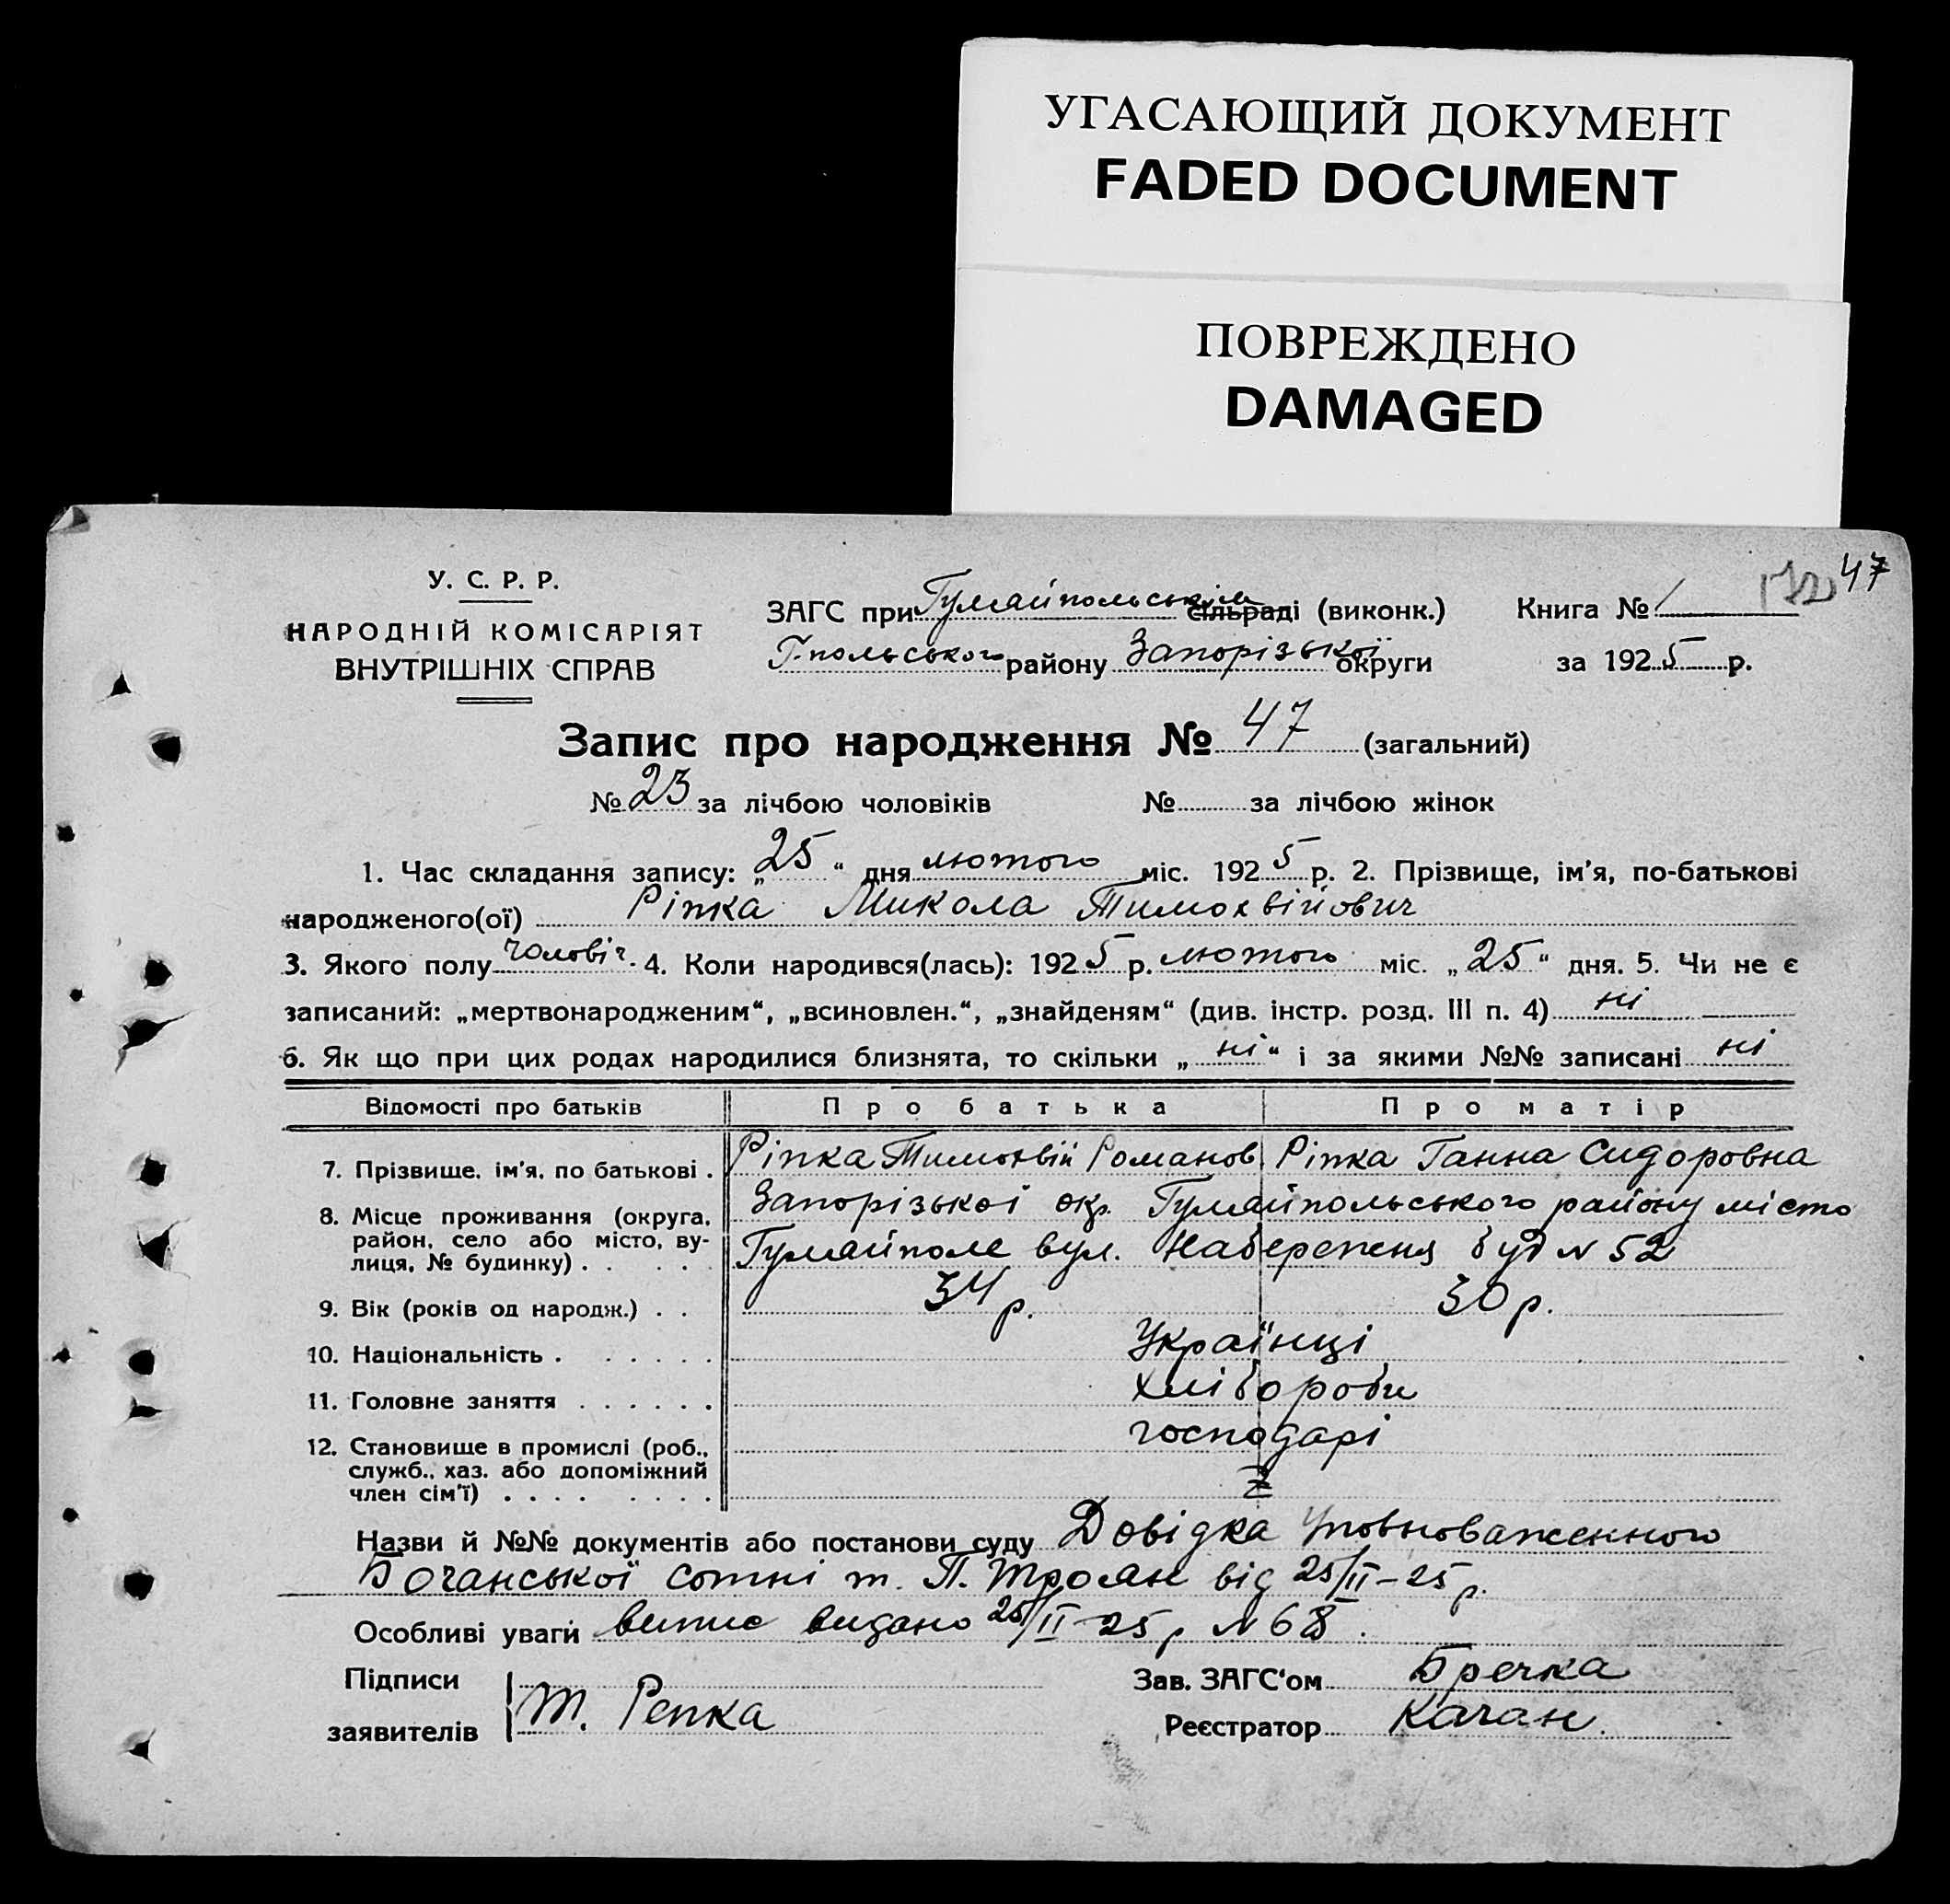 УГАСАЮЩИЙ ДОКУМЕНТ
FADED DOCUMENT
ПОВРЕЖДЕНО
DAMAGED
47
У. С. Р. Р.
НАРОДНІЙ КОМІСАРІЯТ
ВНУТРІШНІХ СПРАВ
ЗАГС при Гумайпольськім сільраді (виконк.) Книга № 1
Г-польського району Запорізької округи за 1925 р.
Запис про народження № 47 (загальний)
№ 23 за лічбою чоловіків № за лічбою жінок
1. Час складання запису: „25“ дня лютого міс. 1925 р. 2. Прізвище, ім’я, по-батькові
народженого(ої) Ріпка Микола Тимохвійович
3. Якого полу чоловіч. 4. Коли народився(лась): 1925 р. лютого міс. „25“ дня. 5. Чи не є
записаний: „мертвонародженим“, „всиновлен.“, „знайденям“ (див. інстр. розд. III п. 4) ні
6. Як що при цих родах народилися близнята, то скільки „ні“ і за якими №№ записані ні
Відомості про батьків Про батька Про матір
7. Прізвище, ім’я, по батькові . Ріпка Тимохвій Романов. Ріпка Ганна Сидоровна
8. Місце проживання (округа, район, село або місто, ву-лиця, № будинку) . . . . . Запорізької окр. Гумайпольського району місто
Гумайполе вул. Набережня буд N 52
9. Вік (років од народж.) . . 34 р. 30 р.
10. Національність . . . . . . Українці
11. Головне заняття . . . . . . хлібороби
12. Становище в промислі (роб., служб., хаз. або допоміжний член сім’ї) . . . . . . . . господарі
Назви й №№ документів або постанови суду Довідка Уповноваженного
Бочанської сотні т. П. Троян від 25/II-25 р.
Особливі уваги випис видано 25/II-25 р N 68.
Підписи
заявителів Т. Репка
Зав. ЗАГС‘ом Бречка
Реєстратор Качан.